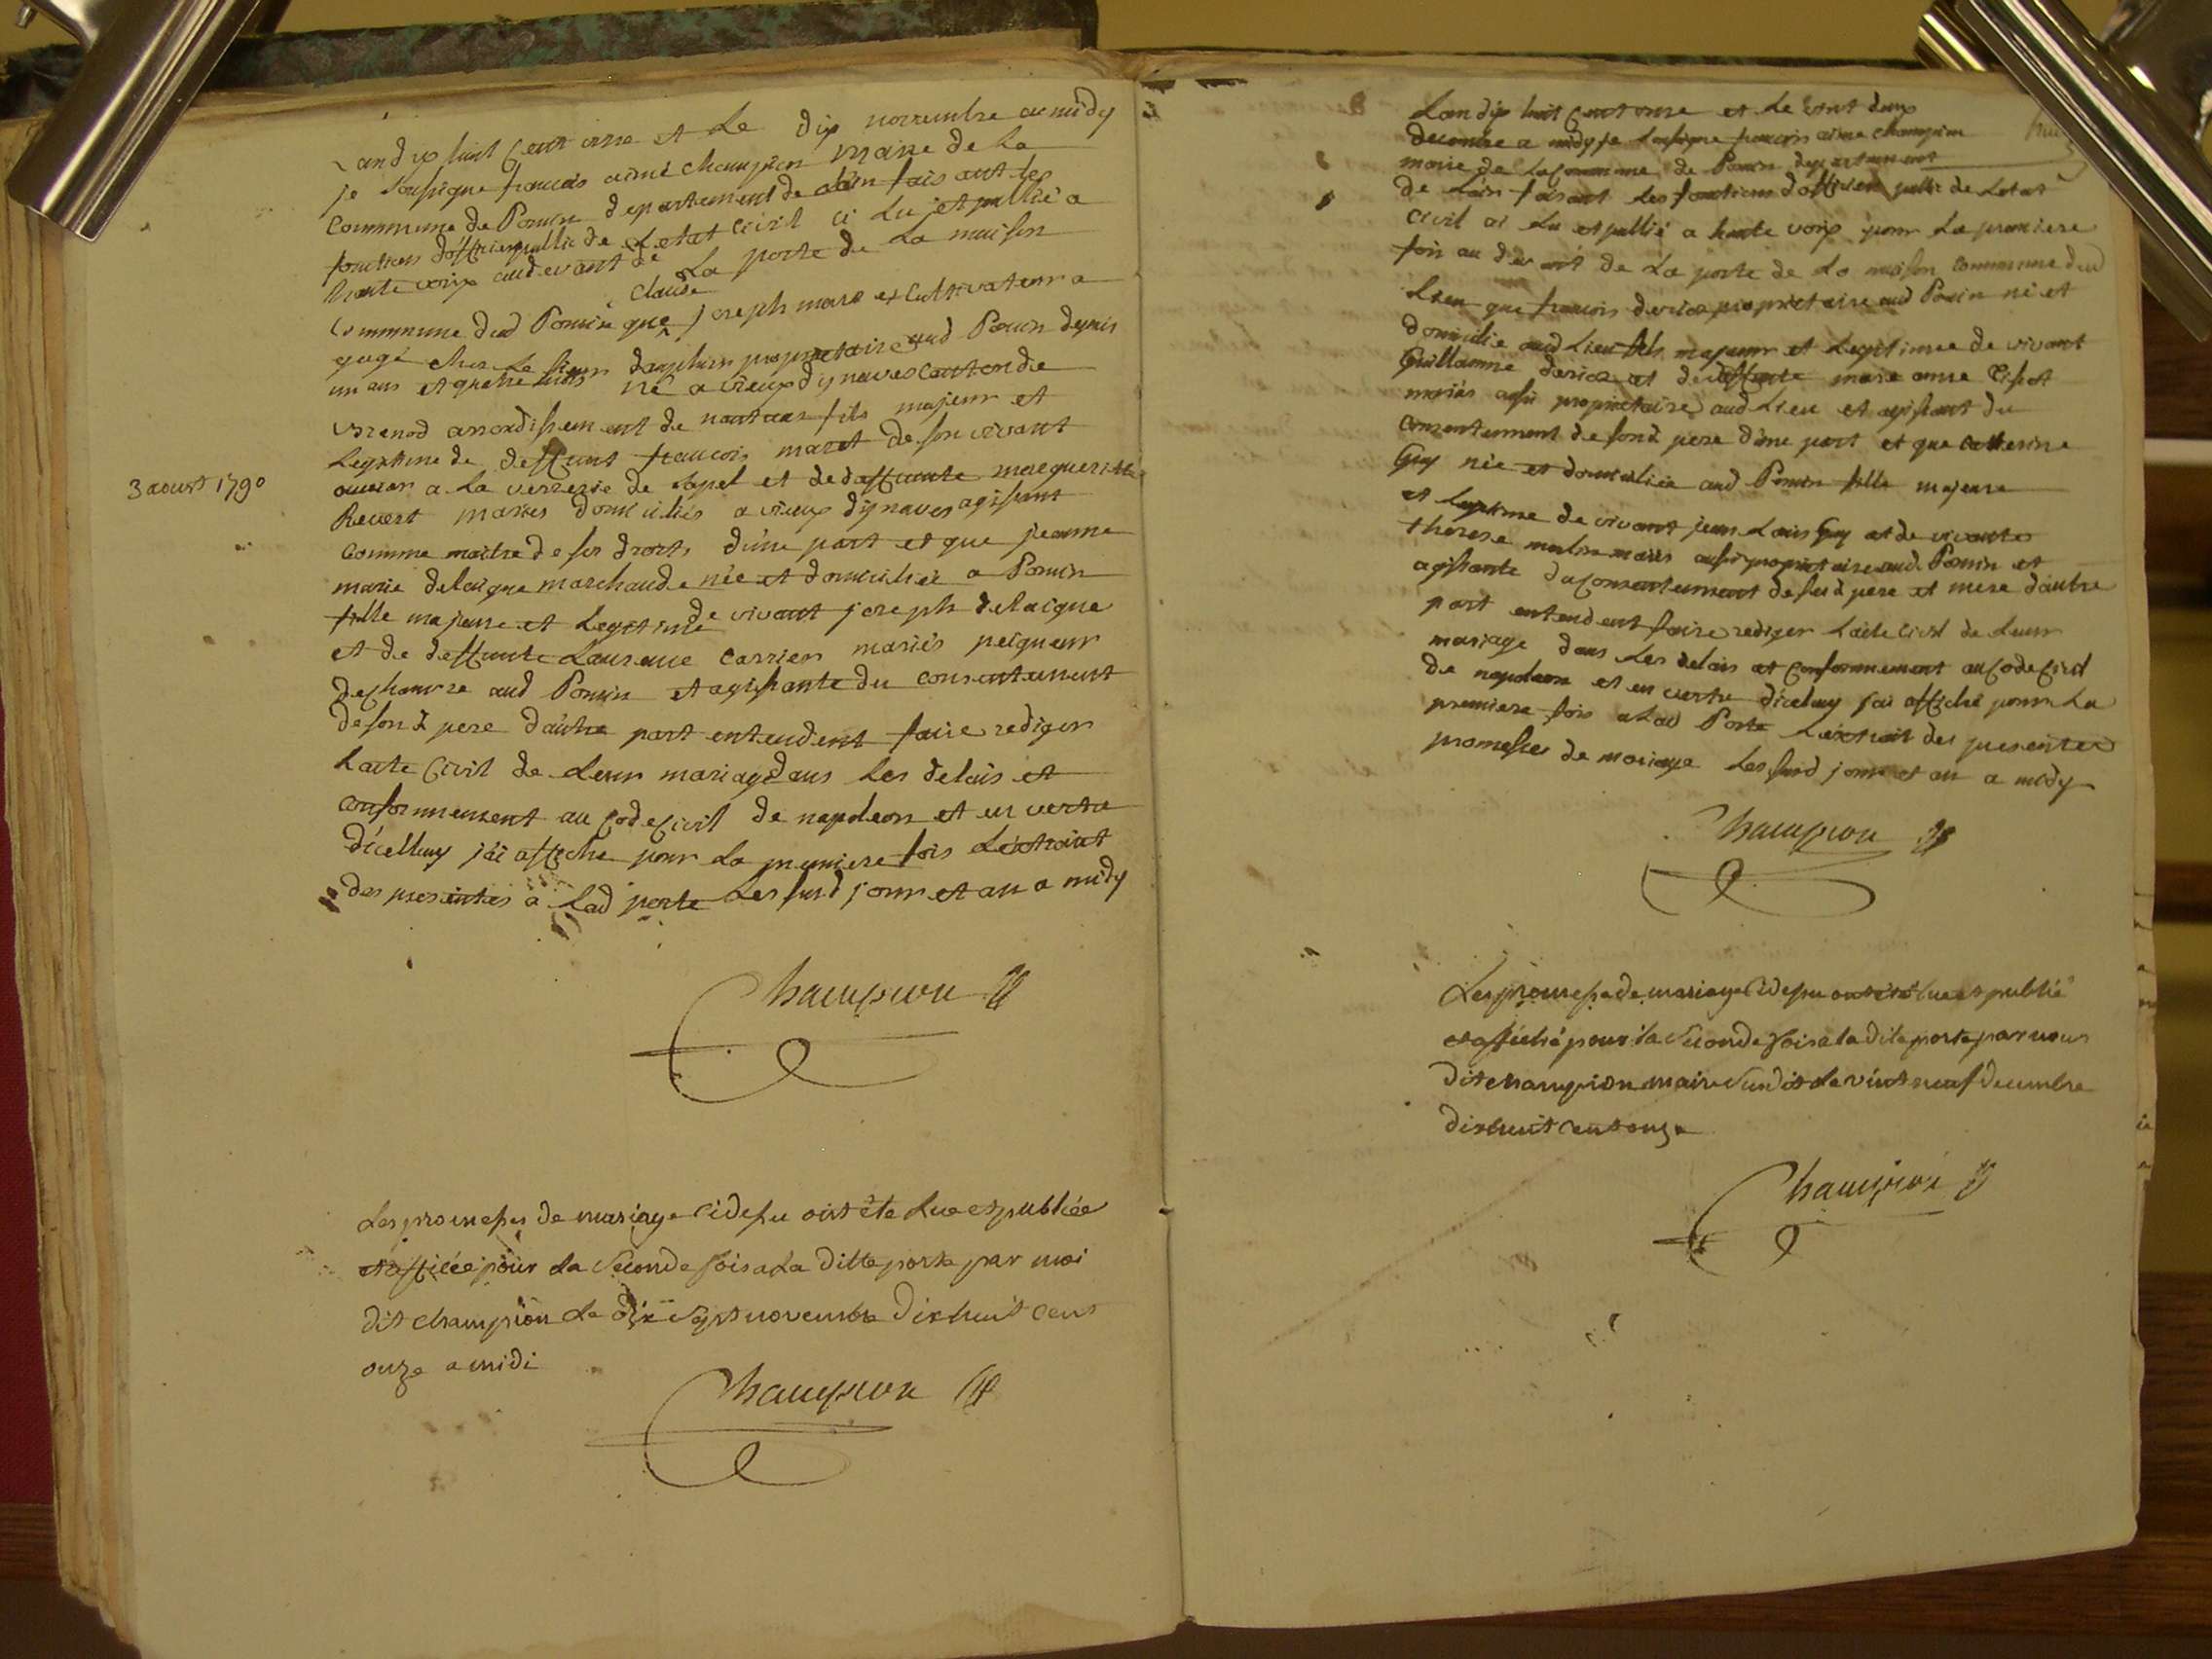 Lan dix huit Cent onze et Le dix novembre a midy
je Soussigne francois aimé champion maire de La
Commune de Poncin departement de Lain fais ant les
fonctions d'officier public de Letat Civil ai Lu et publié a
haute voix au devant de La porte de La maison
Commune dud Poncin que Claude joseph maret Cultivateur a
gagé ches Le sieur dauphin proprietaire aud Poncin depuis
un ans et quatre mois né a vieux dizenaves Canton de
Brenod arrondissement de nantua fils majeur et
Legitime de deffunt francois maret de son vivant
3 aoust 1790
ouvrier a La verrerie de Lapel et de deffuncte marguerithe
Revert mariés domiciliés a vieux dizenaves agissant
Comme maitre de ses droits d'une part et que jeanne
marie delaigue marchande née et domiciliée a Poncin
fille majeure et Legitime de vivant joseph delaigue
et de deffunte Laurence Carrier mariés peigneur
de chanvre aud Poncin et agissante du consentement
de sond pere d'autre part entendent faire rediger
Lacte Civil de Leur mariage dans Les delais et
Conformement au Code Civil de napoleon et en vertu
d'icelluy j'ai affiché pour La premiere fois L'extrait
des presentes a Lad porte Les susd jour et an a midy
Champion
Les promesses de mariage Cidessu ont été Lue et publiée
et afficée pour La Seconde fois a La ditte porte par moi
dit champion Le dix Sept novembre dix huit cent
onze a midi
Champion
Lan dix huit Cent onze et Le vint deux
decembre a midy je Soussigne francois aime champion
maire de La Commune de Poncin departement
de Lain faisant Les fonctions d'officier public de Letat
Civil ai Lu et publié a haute voix pour La premiere
fois au devant de La porte de La maison Commune dud
Lieu que francois derias proprietaire aud Poncin né et
domicilié aud Lieu fils majeur et Legitimee de vivant
Guillaume derias et de deffunte marie anne
mariés aussi proprietaire aud Lieu et agissant du
Consentement de sond pere d'une part et que Catterine
Guy née et domiciliée aud Poncin fille majeure
et Legitime de vivant jean Louis Guy et de vivante
therese merlin mariés aussi proprietaire aud Poncin et
agissante du Consentement de sesd pere et mere d'autre
part entendent faire rediger L'acte Civil de Leur
mariage dans Les delais et Conformement au Code Civil
de napoleon et en vertu d'iceluy j'ai affiché pour La
premiere fois a Lad Porte L'extrait des presentes
promesses de mariage Les susd jour et an a midy
Champion
Les promesse de mariage Cidessu ont été lue et publié
et affiché pour la Seconde fois a la dite porte par nous
dit champion maire Susdit Le vint neuf decembre
dix huit cent onze
Champion